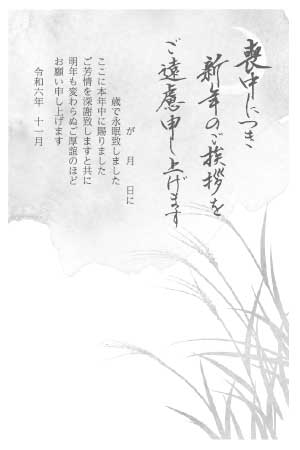 喪中につき
新年のご挨拶を
ご遠慮申し上げます
が　月　日に
歳で永眠致しました
ここに本年中に賜りました
ご芳情を深謝致しますと共に
明年も変わらぬご厚誼のほど
お願い申し上げます
令和六年　十一月